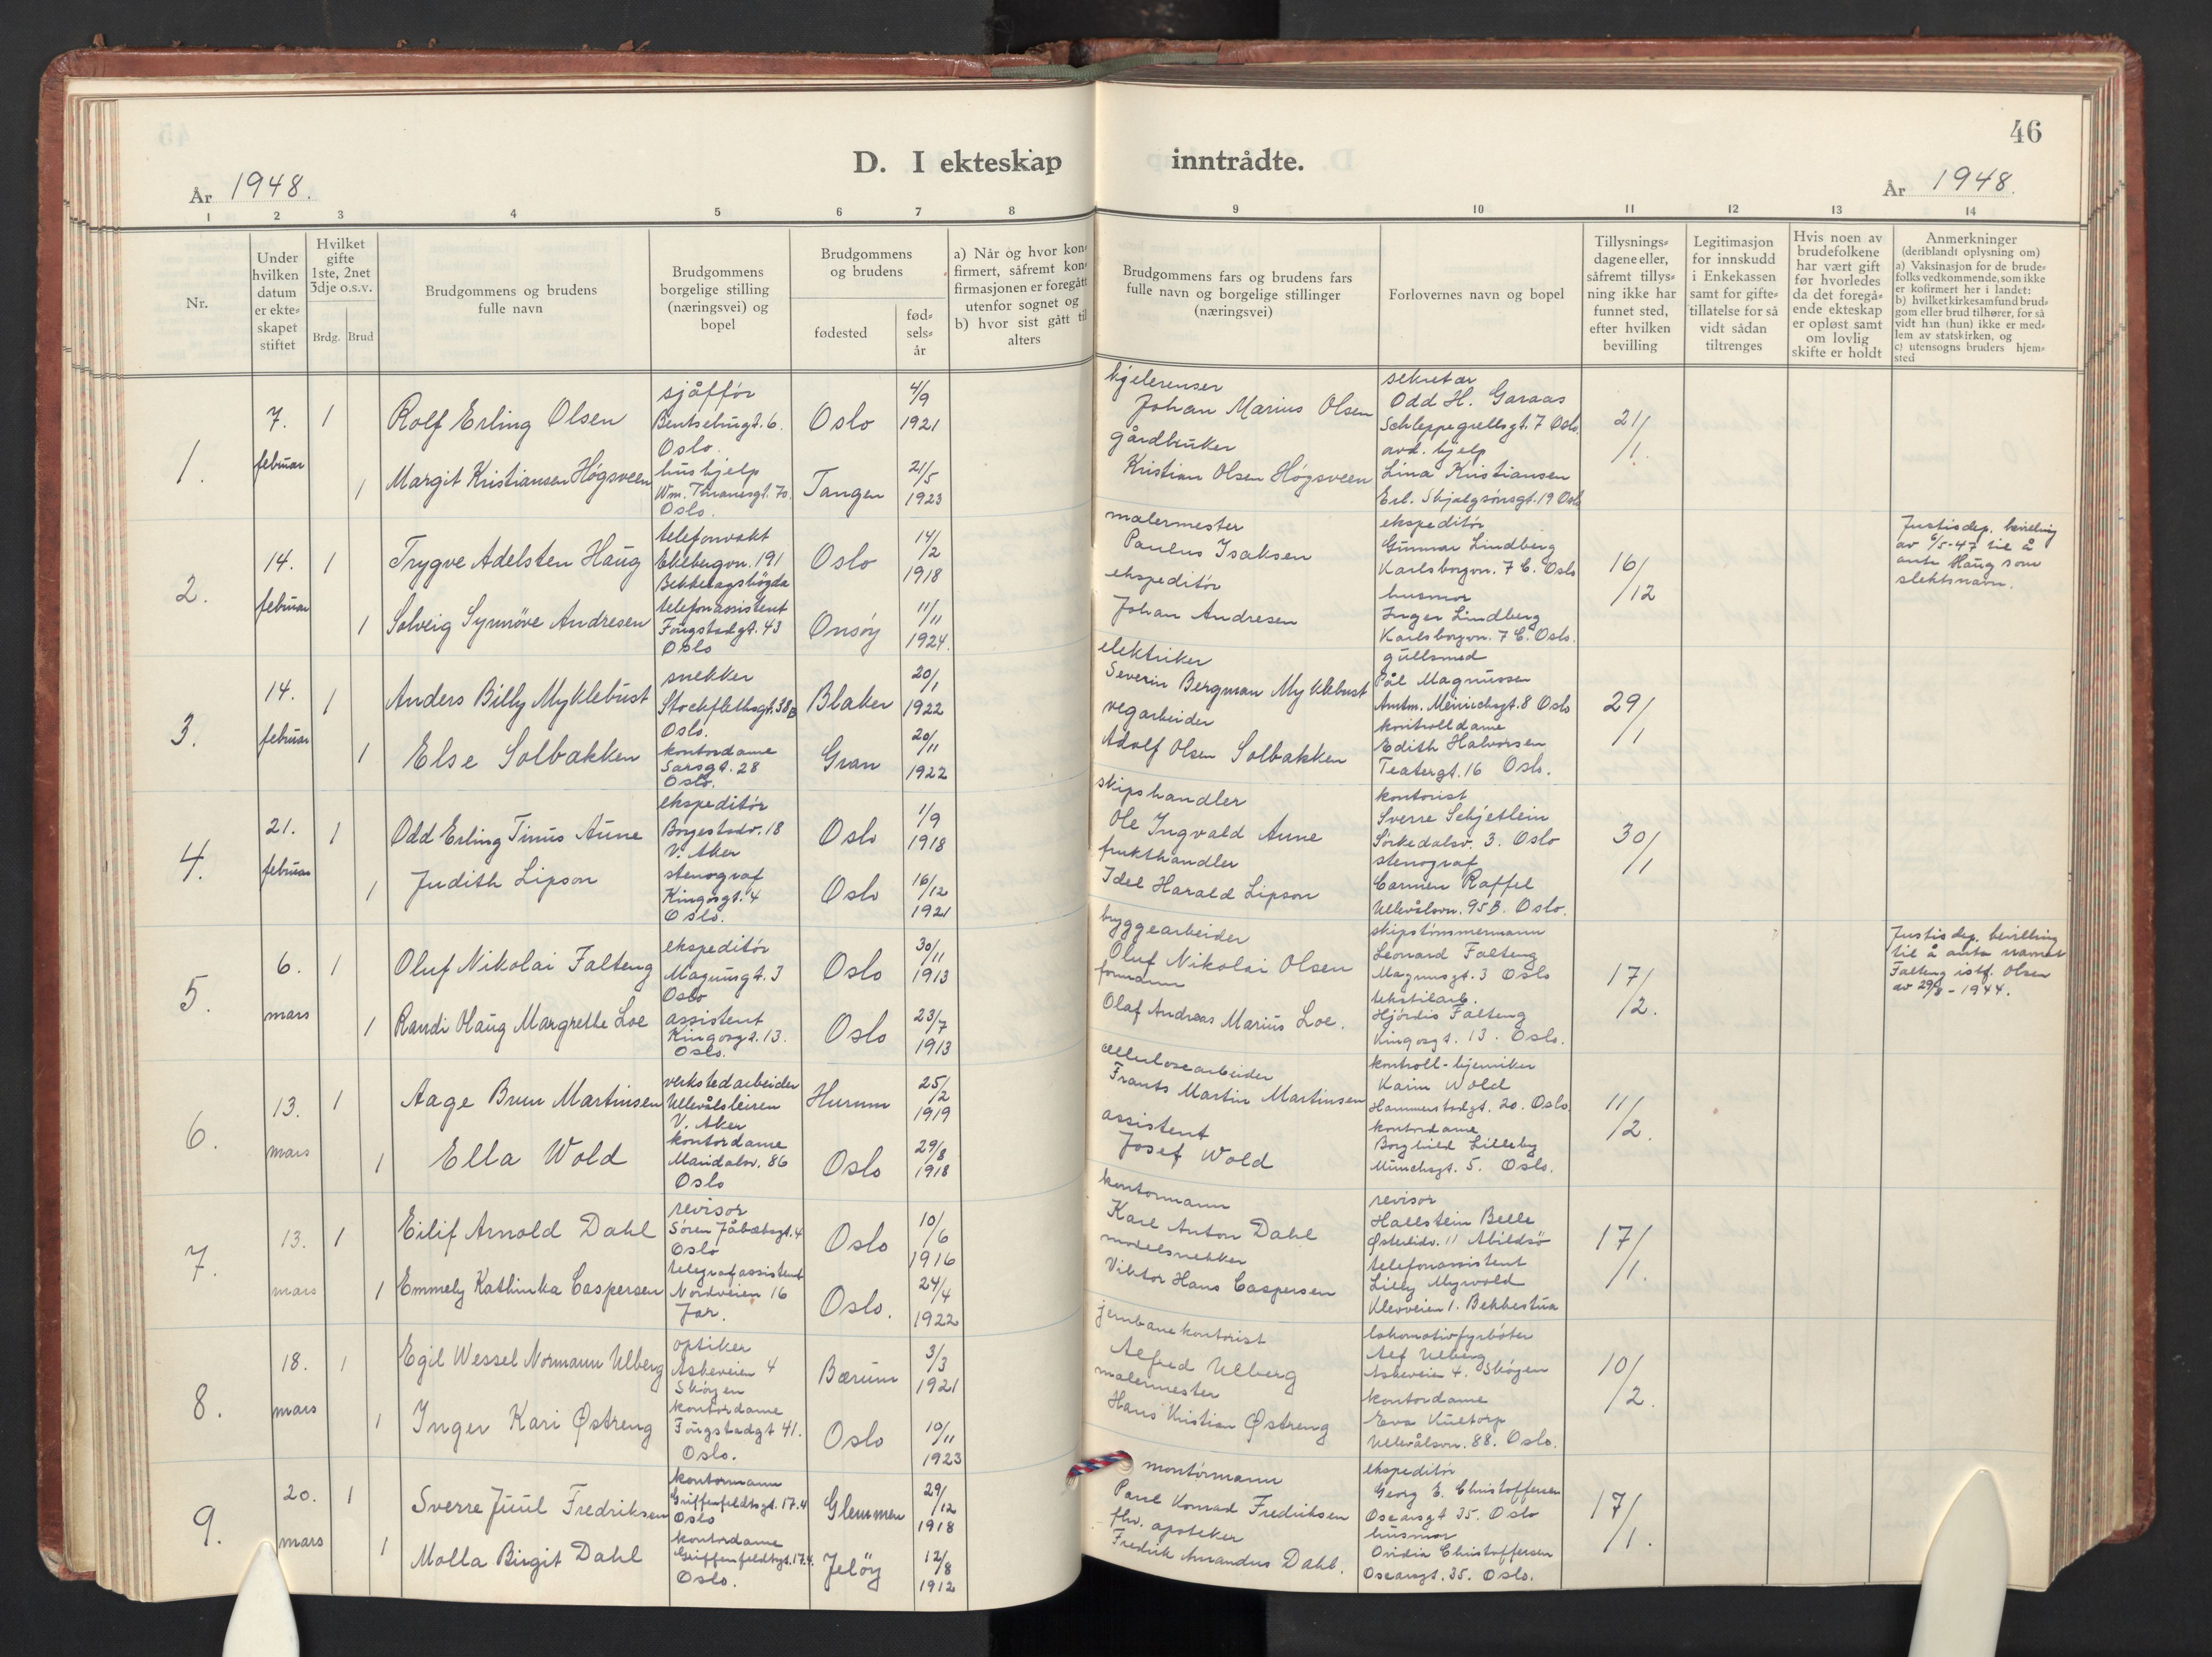 46
D. I ekteskap inntrådte.
År 1948.
År 1948.
1 2 3 4 5 6 7 8 9 10 11 12 13 14
Nr.
Under
hvilken
datum
er ekte-
skapet
stiftet
Hvilket
gifte
1ste, 2net
3dje o.s.v.
Brdg. Brud
Brudgommens og brudens
fulle navn
Brudgommens
borgelige stilling
(næringsvei) og
bopel
Brudgommens
og brudens
fødested
fød-
sels-
år
a) Når og hvor kon-
firmert, såfremt kon-
firmasjonen er foregått
utenfor sognet og
b) hvor sist gått til
alters
Brudgommens fars og brudens fars
fulle navn og borgelige stillinger
(næringsvei)
Forlovernes navn og bopel
Tillysnings-
dagene eller,
såfremt tillys-
ning ikke har
funnet sted,
efter hvilken
bevilling
Legitimasjon
for innskudd
i Enkekassen
samt for gifte-
tillatelse for så
vidt sådan
tiltrenges
Hvis noen av
brudefolkene
har vært gift
før hvorledes
da det foregå-
ende ekteskap
er opløst samt
om lovlig
skifte er holdt
Anmerkninger
(deriblandt oplysning om)
a) Vaksinasjon for de brude-
folks vedkommende, som ikke
er kofirmert her i landet:
b) hvilket kirkesamfund brud-
gom eller brud tilhører, for så
vidt han (hun) ikke er med-
lem av statskirken, og
c) utensogns bruders hjem-
sted
1.
7.
februar
1
Rolf Erling Olsen
sjåffør
Bentsebrugt. 6.
Oslo.
Oslo
4/9
1921
kjelerenser
Johan Marius Olsen
sekretær
Odd H. Garaas
Schleppegrellsgt. 7 Oslo.
21/1.
1
Margit Kristiansen Høgsveen
hushjelp
Wm. Thranesgt. 70.
Oslo.
Tangen
21/5
1923
gårdbruker
Kristian Olsen Høgsveen
avd. hjelp
Lina Kristiansen
Erl. Skjalgsønsgt. 19 Oslo
2.
14.
februar
1
Trygve Adelsten Haug
telefonvakt
Ekebergvn. 191
Bekkelagshøgda
Oslo
14/2
1918
malermester
Paulus Isaksen
ekspeditör
Gunnar Lindberg
Karlsborgvn. 7 C. Oslo
16/12
Justisdep. bevilling
av 6/5-47 til å
anta Haug som
slektsnavn.
1
Solveig Synnöve Andresen
telefonassistent
Fougstadgt. 43
Oslo
Onsøy
11/11
1924.
ekspeditör
Johan Andresen
husmor
Inger Lindberg
Karlsborgvn. 7 C. Oslo.
3.
14.
februar
1
Anders Billy Myklebust
snekker
Stockflethsgt. 38B
Oslo.
Blaker
20/1
1922
elektriker
Severin Bergman Myklebust
gullsmed
Pål Magnussen
Amtm. Meinichsgt. 8 Oslo
29/1
1
Else Solbakken
kontordame
Sarsgt. 28
Oslo.
Gran
20/11
1922
vegarbeider
Adolf Olsen Solbakken
kontrolldame
Edith Halvorsen
Teatergt. 16 Oslo.
4.
21.
februar
1
Odd Erling Tinius Aune
ekspeditör
Borgestadv. 18
V. Aker
Oslo
1/9
1918
skipshandler
Ole Ingvald Aune
kontorist
Sverre Schjetlein
Sörkedalsv. 3. Oslo
30/1
1
Judith Lipson
stenograf
Kingosgt. 4
Oslo.
Oslo
16/12
1921
frukthandler
Idel Harald Lipson
stenograf
Carmen Raffel
Ullevålsvn. 95 B. Oslo.
5.
6.
mars
1
Oluf Nikolai Falteng
ekspeditör
Magnusgt. 3
Oslo
Oslo
30/11
1913
byggearbeider
Oluf Nikolai Olsen
skipstömmermann
Leonard Falteng
Magnusgt. 3 Oslo
17/2.
Justis dep. bevilling
til å anta navnet
Falteng istf. Olsen
av 29/8-1944.
1
Randi Haug Margrethe Loe
assistent
Kingosgt. 13.
Oslo.
Oslo
23/7
1913
formann
Olaf Andreas Marius Loe.
tekstilarb.
Hjördis Falteng
Kingosgt. 13. Oslo.
6.
13.
mars
1
Aage Brun Martinsen
verkstedarbeider
Ullevålsleiren
V. Aker
Hurum
25/2
1919
cellulosearbeider
Frants Martin Martinsen
kontroll-kjemiker
Karin Wold
Hammerstadgt. 20. Oslo.
11/2.
1
Ella Wold
kontordame
Maridalsv. 86
Oslo
Oslo
29/8
1918
assistent
Josef Wold
kontordame
Borghild Lilleby
Munchsgt. 5. Oslo.
7.
13.
mars
1
Eilif Arnold Dahl
revisor
Sören Jåbæksgt. 4
Oslo
Oslo
10/6
1916
kontormann
Karl Anton Dahl
revisor
Hallstein Belle
Østerlidv. 11 Abildsö
17/1.
1
Emmely Kathinka Caspersen
telegrafassistent
Nordveien 16
Jar.
Oslo.
24/4
1922
modellsnekker
Viktor Hans Caspersen
telefonassistent
Lilly Myrvold
Kleivveien 1. Bekkestua
8.
18.
mars
1
Egil Wessel Normann Ulberg
optiker
Askeveien 4
Sköyen
Bærum
3/3
1921
jernbanekontorist
Alfred Ulberg
lokomotivfyrböter
Alf Ulberg
Askeveien 4. Sköyen
10/2.
1
Inger Kari Østreng
kontordame
Fougstadgt 41.
Oslo.
Oslo
10/11
1923
malermester
Hans Kristian Østreng
kontordame
Eva Kultorp
Ullevålsvn. 88. Oslo.
9.
20.
mars
1
Sverre Juul Fredriksen
kontormann
Griffenfeldtsgt. 17.4
Oslo
Glemmen
29/12
1918
montörmann
Paul Konrad Fredriksen
ekspeditör
Georg E. Christoffersen
Oscarsgt 35. Oslo
17/1.
1
Molla Birgit Dahl
kontordame
Griffenfeldtsgt. 17.4.
Oslo.
Jelöy
12/8
1912
fhv. apoteker
Fredrik Amandus Dahl.
husmor
Ovidia Christoffersen
Oscarsgt. 35. Oslo.